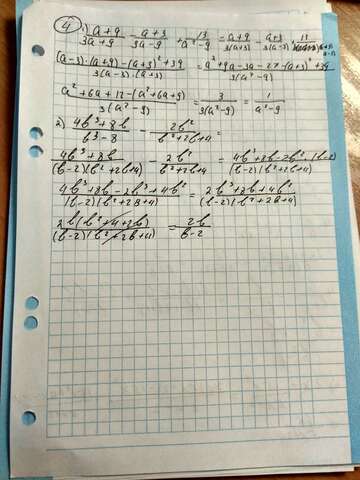 ④ 1) (a+9)/(3a+9) - (a+3)/(3a-9) + 13/(a²-9) = (a+9)/(3(a+3)) - (a+3)/(3(a-3))
((a-3)·(a+9)-(a+3)²+39)/(3(a-3)·(a+3)) = (a²+9a-3a-27-(a+3)²+39)/(3(a²-9))
(a²+6a+12-(a²+6a+9))/(3(a²-9)) = 3/(3(a²-9)) = 1/(a²-9)
2) (4b³+8b)/(b3-8) - 2b²/(b²+2b+4) =
(4b³+8b)/((b-2)(b²+2b+4)) - 2b²/(b²+2b+4) = (4b³+8b-2b²·(b-2))/((b-2)(b²+2b+4))
(4b³+8b-2b³+4b²)/((b-2)(b²+2b+4)) = (2b³+8b+4b²)/((b-2)(b²+2b+4))
(2b(b²+4+2b))/((b-2)(b²+2b+4)) = 2b/(b-2)